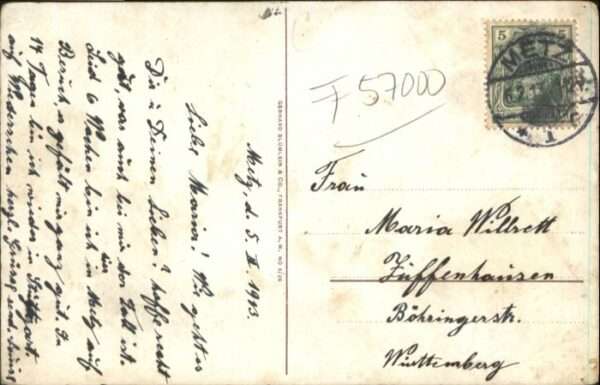 Metz, d. 5. II. 1913.
Liebe Maria! Wie geht es
Dir u. Deinen Lieben? hoffe recht
gut, was auch bei mir der Fall ist.
Seit 6 Wochen bin ich in Metz auf
Besuch, es gefällt mir ganz gut. In
14 Tagen bin ich wieder in Stuttgart.
auf Wiedersehen herzl. Grüsse
F 57000
5 5
METZ
* 1
Frau
Maria Willrett
Zuffenhausen
Böhringerstr.
Württemberg